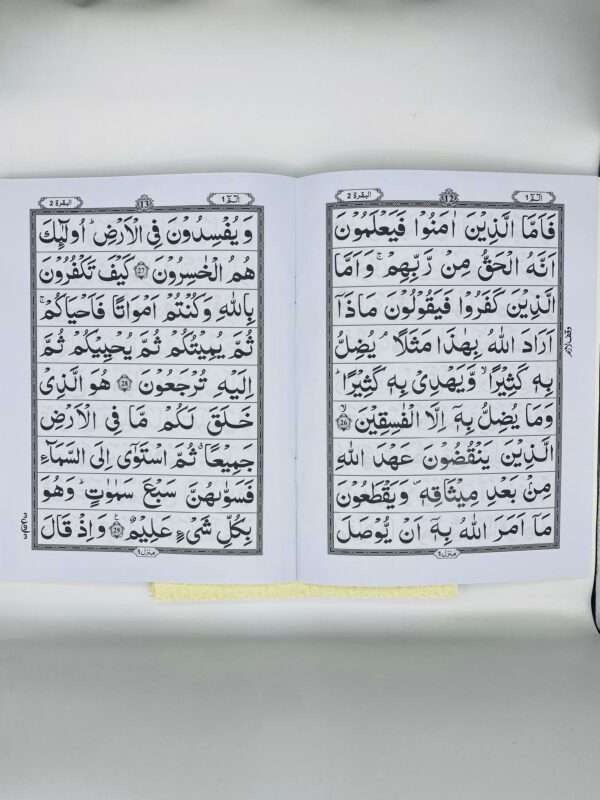 الٓمّٓ ١
١٢
البقرة ٢
فَاَمَّا الَّذِيْنَ اٰمَنُوْا فَيَعْلَمُوْنَ
اَنَّهُ الْحَقُّ مِنْ رَّبِّهِمْ ۚ وَاَمَّا
الَّذِيْنَ كَفَرُوْا فَيَقُوْلُوْنَ مَاذَآ
اَرَادَ اللّٰهُ بِهٰذَا مَثَلًا ۘ يُضِلُّ
بِهٖ كَثِيْرًا ۙ وَّيَهْدِىْ بِهٖ كَثِيْرًا ؕ
وَمَا يُضِلُّ بِهٖٓ اِلَّا الْفٰسِقِيْنَ ۙ ﴿26﴾
الَّذِيْنَ يَنْقُضُوْنَ عَهْدَ اللّٰهِ
مِنْۢ بَعْدِ مِيْثَاقِهٖ ۪ وَيَقْطَعُوْنَ
مَآ اَمَرَ اللّٰهُ بِهٖٓ اَنْ يُّوْصَلَ
منزل ١
وقف لازم
الٓمّٓ ١
١٣
البقرة ٢
وَيُفْسِدُوْنَ فِى الْاَرْضِ ؕ اُولٰٓئِكَ
هُمُ الْخٰسِرُوْنَ ﴿27﴾ كَيْفَ تَكْفُرُوْنَ
بِاللّٰهِ وَكُنْتُمْ اَمْوَاتًا فَاَحْيَاكُمْ ۚ
ثُمَّ يُمِيْتُكُمْ ثُمَّ يُحْيِيْكُمْ ثُمَّ
اِلَيْهِ تُرْجَعُوْنَ ﴿28﴾ هُوَ الَّذِىْ
خَلَقَ لَكُمْ مَّا فِى الْاَرْضِ
جَمِيْعًا ۗ ثُمَّ اسْتَوٰٓى اِلَى السَّمَآءِ
فَسَوّٰىهُنَّ سَبْعَ سَمٰوٰتٍ ؕ وَهُوَ
بِكُلِّ شَىْءٍ عَلِيْمٌ ﴿29﴾ وَاِذْ قَالَ
منزل ١